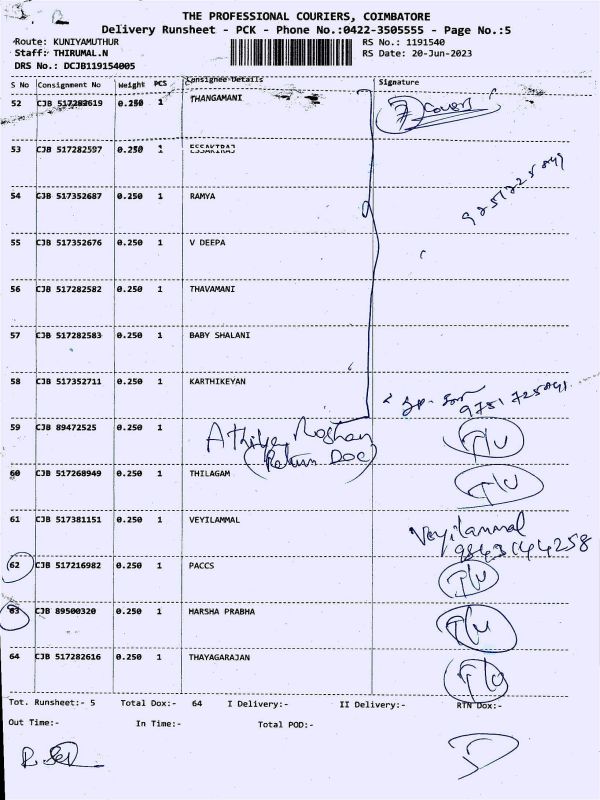 THE PROFESSIONAL COURIERS, COIMBATORE
Delivery Runsheet - PCK - Phone No.:0422-3505555 - Page No.:5
Route: KUNIYAMUTHUR
RS No.: 1191540
Staff: THIRUMAL.N
RS Date: 20-Jun-2023
DRS No.: DCJB119154005
S No Consignment No Weight PCS Consignee Details Signature
52 CJB 517282619 0.250 1 THANGAMANI
53 CJB 517282597 0.250 1 ESSAKIRAJ
54 CJB 517352687 0.250 1 RAMYA
55 CJB 517352676 0.250 1 V DEEPA
56 CJB 517282582 0.250 1 THAVAMANI
57 CJB 517282583 0.250 1 BABY SHALANI
58 CJB 517352711 0.250 1 KARTHIKEYAN
59 CJB 89472525 0.250 1 Athiya Roshan
(Return Doc)
60 CJB 517268949 0.250 1 THILAGAM
61 CJB 517381151 0.250 1 VEYILAMMAL Veyilammal
9843144258
62 CJB 517216982 0.250 1 PACCS
63 CJB 89500320 0.250 1 HARSHA PRABHA
64 CJB 517282616 0.250 1 THAYAGARAJAN
Tot. Runsheet:- 5 Total Dox:- 64 I Delivery:- II Delivery:- RTN Dox:-
Out Time:- In Time:- Total POD:-